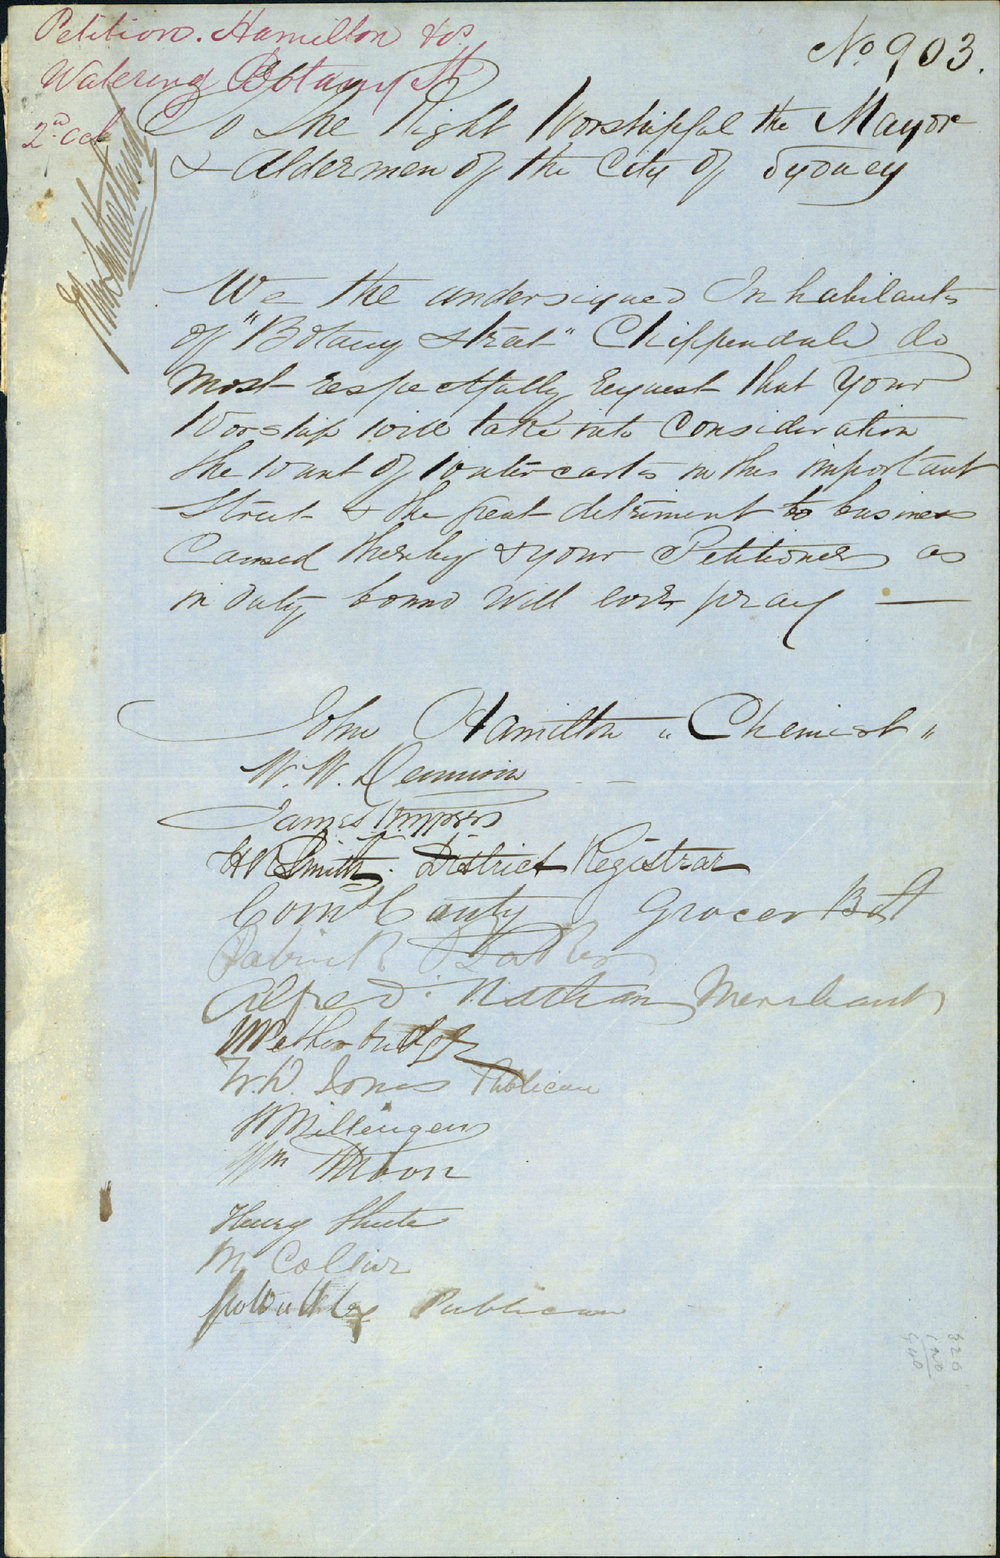 Petition. Hamilton & os
Watering Botany St
2nd Oct
No 903.
To The Right Worshipful the Mayor
& Aldermen of the City of Sydney
We the undersigned Inhabitants
of "Botany Street" Chippendale do
most respectfully request that your
Worship will take into Consideration
the want of water carts in this important
Street & the great detriment to business
Caused thereby & your Petitioners as
in duty bound will ever pray —
John Hamilton "Chemist"
W. W. Dennison
James
Smith. District Registrar
Corns Canty Grocer Bot St
Patrick
Alfred Nathan Merchant
W.D. Jones Publican
Millengen
Wm Moon
Henry Shute
M Collier
Publican
326